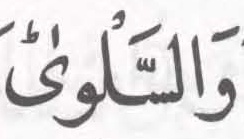 وَالسَّلْوٰىؕ